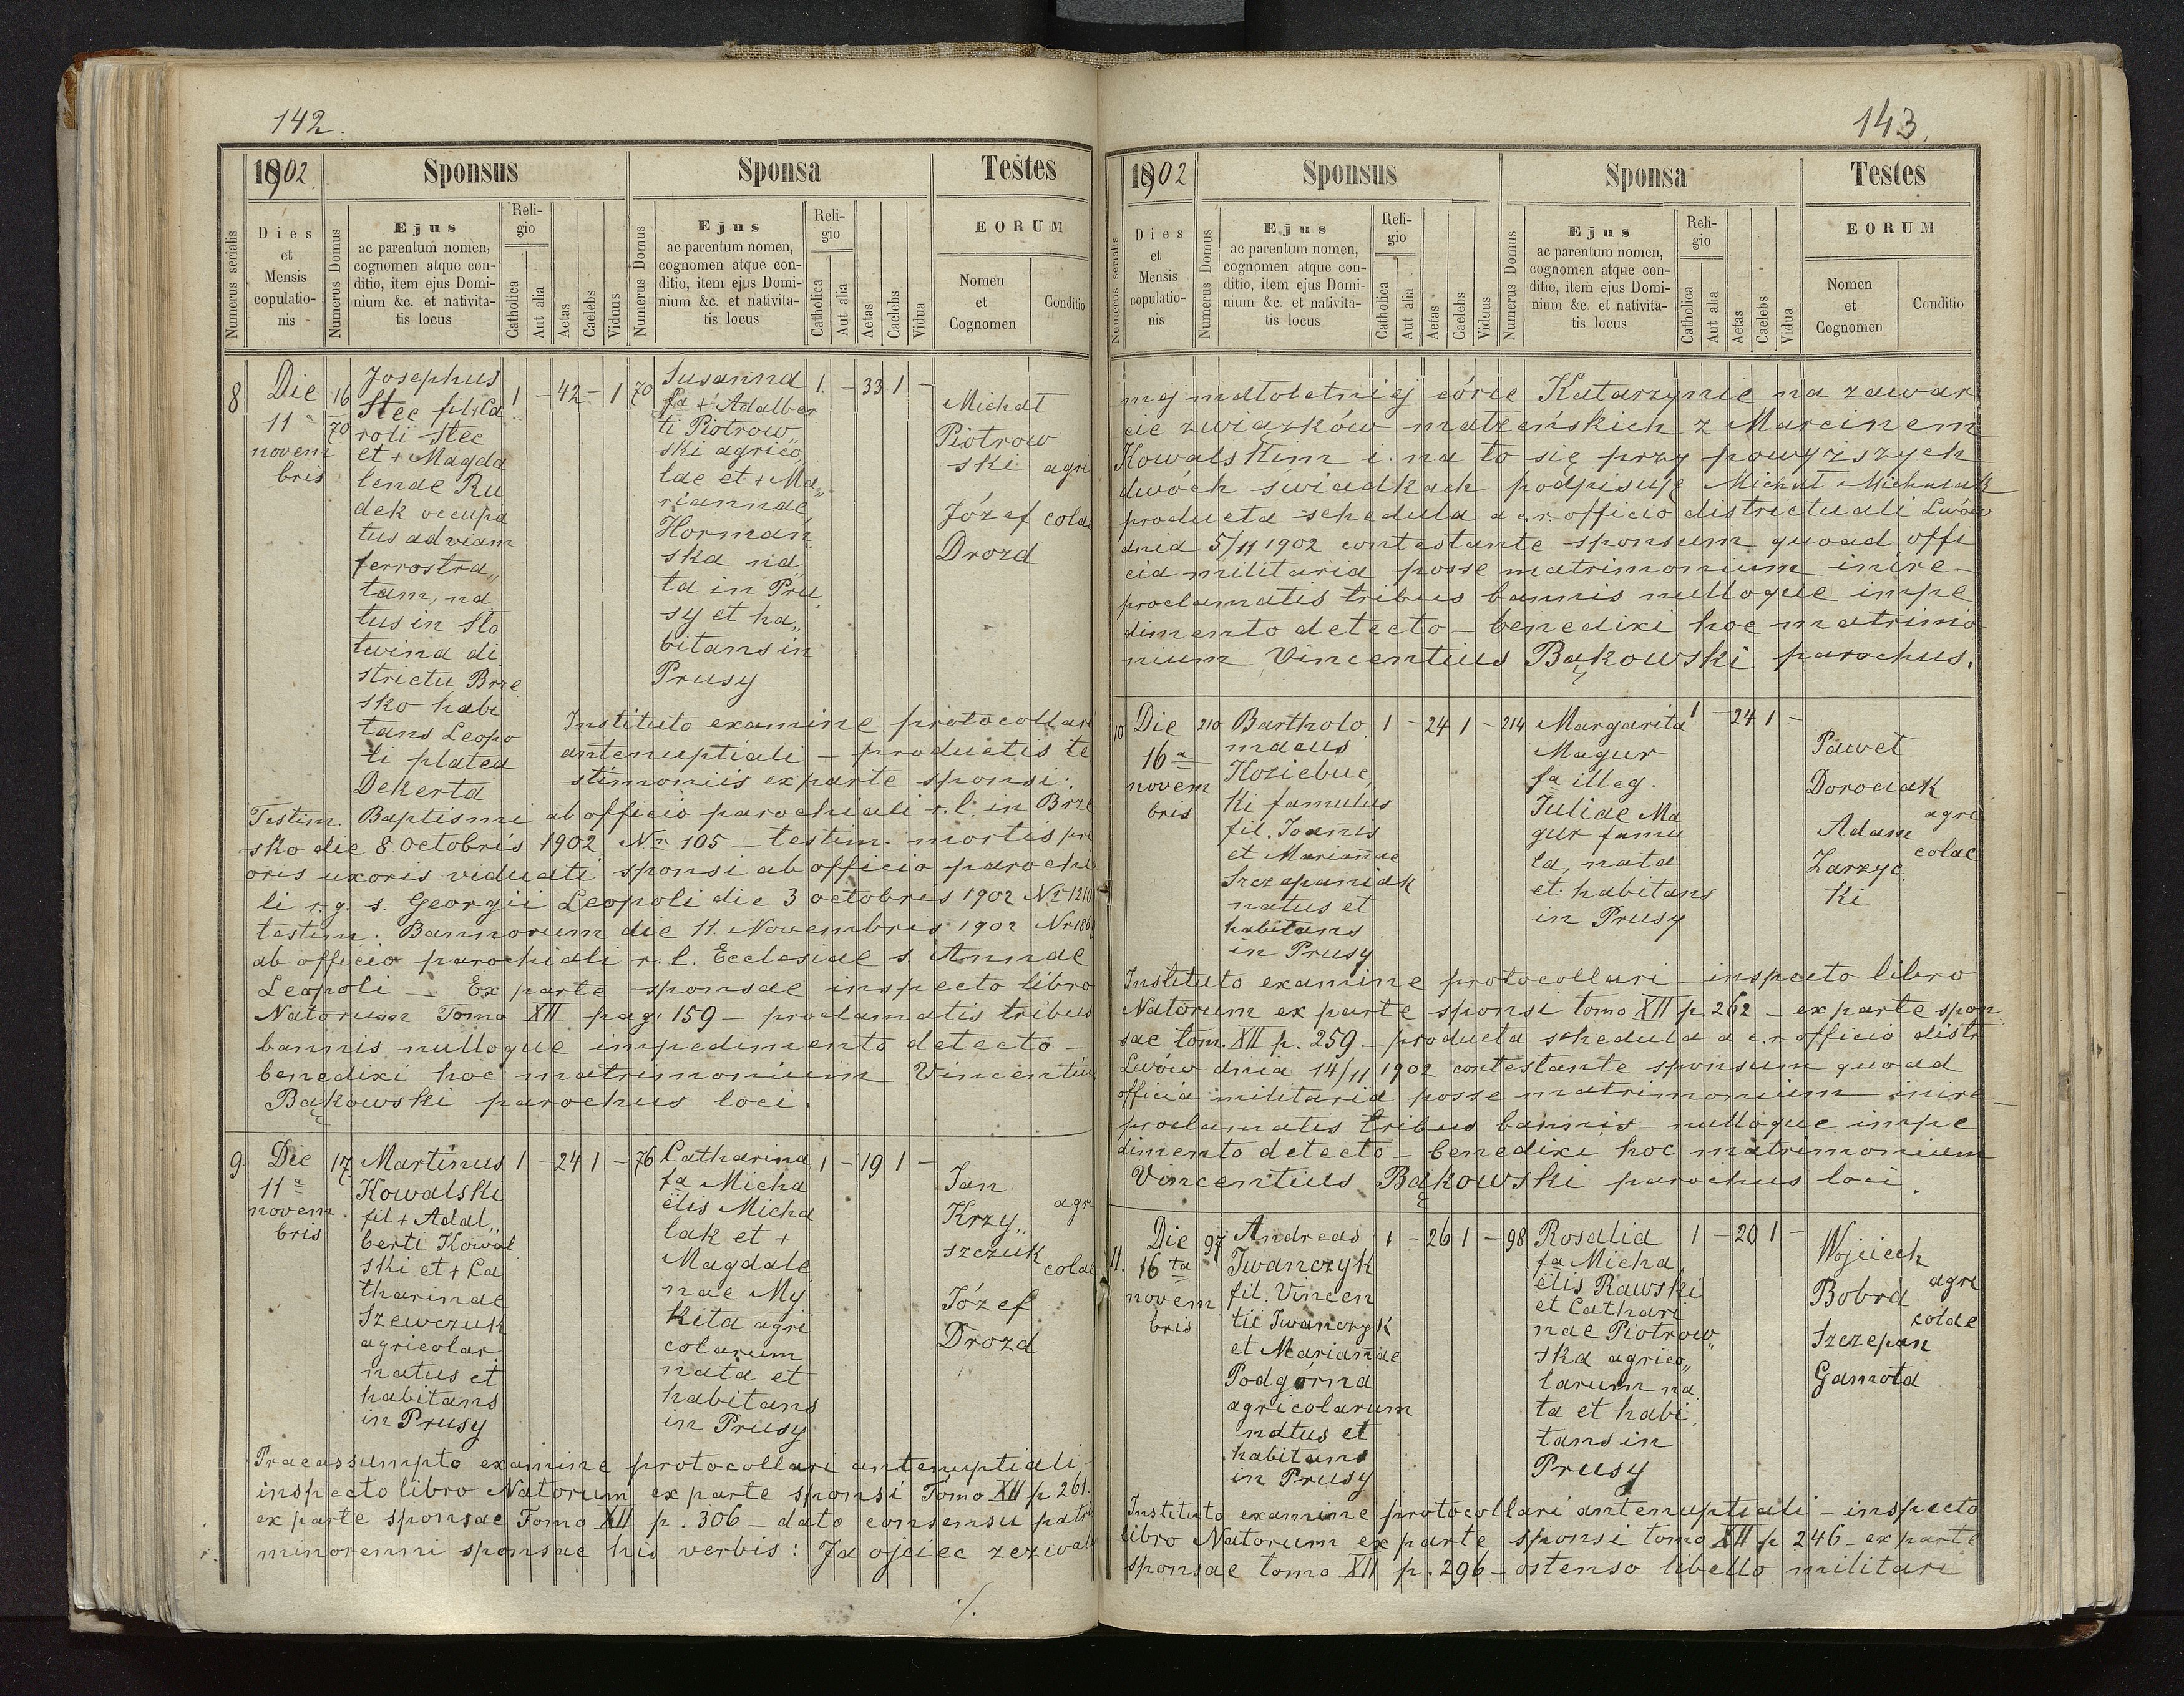 142.
1902.
Sponsus
Sponsa
Testes
Numerus serialis
Dies
et
Mensis
copulatio-
nis
Numerus Domus
Ejus
ac parentum nomen,
cognomen atque con-
ditio, item ejus Domi-
nium &c. et nativita-
tis locus
Reli-
gio
Catholica
Aut alia
Aetas
Caelebs
Viduus
Numerus Domus
Ejus
ac parentum nomen,
cognomen atque con-
ditio, item ejus Domi-
nium &c. et nativita-
tis locus
Reli-
gio
Catholica
Aut alia
Aetas
Caelebs
Vidua
EORUM
Nomen
et
Cognomen
Conditio
8
Die
11a
novem
bris
16
70
Josephus
Stec fil + Ca
roli Stec
et + Magda
lenae Ru
dek occupa
tus ad viam
ferrostra„
tam, na
tus in Sło
twina di
strictu Brze
sko habi
tans Leopo
li platea
Dekerta
1 - 42 - 1
70
Susanna
fa + Adalber
ti Piotrow„
ski agrico
lae et + Ma„
riannae
Horman
ska na
ta in Pru
sy et ha„
bitans in
Prusy
1. - 33 1 -
Michał
Piotrow
ski agri
Józef colae
Drozd
Instituto examine protocollari
antenuptiali - productis te
stimoniis ex parte sponsi:
Testim. Baptismi ab officio parochiali r. l. in Brze
sko die 8. Octobris 1902 Nr 105 - testim. mortis pri
oris uxoris viduati sponsi ab officio parochi
li r. g. s. Georgii Leopoli die 3 octobris 1902 Nr 1210
testim. Bannorum die 11. Novembris 1902
ab officio parochiali r. l. Ecclesiae s. Annae
Leopoli - Ex parte sponsae inspecto libro
Natorum Tomo XII pag. 159 - proclamatis tribus
bannis nulloque impedimento detecto -
benedixi hoc matrimonium Vincentius
Bąkowski parochus loci.
9.
Die
11a
novem
bris
17
Martinus
Kowalski
fil + Adal„
berti Kowal
ski et + Ca
tharinae
Szewczuk
agricolar
natus et
habitans
in Prusy
1 - 24 1 -
76
Catharina
fa Micha
ëlis Micha
lak et +
Magdale
nae My
kita agri
colarum
nata et
habitans
in Prusy
1 - 19 1 -
Jan
Krzy„ agri
szczuk
colae
Józef
Drozd
Praeassumpto examine protocollari antenuptiali -
inspecto libro Natorum ex parte sponsi Tomo XII p 261.
ex parte sponsae Tomo XII p. 306 - dato consensu patris
minorenni sponsae his verbis: Ja ojciec zezwala
./.
143.
1902
Sponsus
Sponsa
Testes
Numerus serialis
Dies
et
Mensis
copulatio-
nis
Numerus Domus
Ejus
ac parentum nomen,
cognomen atque con-
ditio, item ejus Domi-
nium &c. et nativita-
tis locus
Reli-
gio
Catholica
Aut alia
Aetas
Caelebs
Viduus
Numerus Domus
Ejus
ac parentum nomen,
cognomen atque con-
ditio, item ejus Domi-
nium &c. et nativita-
tis locus
Reli-
gio
Catholica
Aut alia
Aetas
Caelebs
Vidua
EORUM
Nomen
et
Cognomen
Conditio
mej małoletniej córce Katarzynie na zawar
cie związków małżeńskich z Marcinem
Kowalskim i na to się przy powyższych
dwóch świadkach podpisuję Michał Michalak
producta schedula a c. r. officio districtuali Lwów
dnia 5/11 1902 contestante sponsum quoad offi
cia militaria posse matrimonium inire -
proclamatis tribus bannis nulloque impe
dimento detecto - benedixi hoc matrimo
nium Vincentius Bąkowski parochus.
10
Die
16a
novem
bris
210
Bartholo
maeus
Koziebuc
ki famulus
fil. Joañis
et Mariañae
Szczepaniak
natus et
habitans
in Prusy
1 - 24 1 -
214
Margarita
Magur
fa illeg.
Juliae Ma
gur famu
la, nata
et habitans
in Prusy
1 - 24 1 -
Paweł
Dorociak
agri
Adam
colae
Zarzyc
ki
Instituto examine protocollari - inspecto libro
Natorum ex parte sponsi tomo XII p 262 - ex parte spon
sae tom. XII p. 259 - producta schedula a c. r. officio distr.
Lwów dnia 14/11 1902 contestante sponsum quoad
officia militaria posse matrimonium inire -
proclamatis tribus bannis - nulloque impe
dimento detecto - benedixi hoc matrimonium
Vincentius Bąkowski parochus loci.
11.
Die
16ta
novem
bris
97
Andreas
Iwanczyk
fil. Vincen
tii Iwanczyk
et Mariañae
Podgórna
agricolarum
natus et
habitans
in Prusy
1 - 26 1 -
98
Rosalia
fa Micha
ëlis Rawski
et Cathari
nae Piotrow„
ska agrico„
larum na
ta et habi
tans in
Prusy
1 - 20 1 -
Wojciech
Bobra agri
colae
Szczepan
Gamota
Instituto examine protocollari antenuptiali - inspecto
libro Natorum ex parte sponsi tomo XII p 246 - ex parte
sponsae tomo XII p. 296 - ostenso libello militari